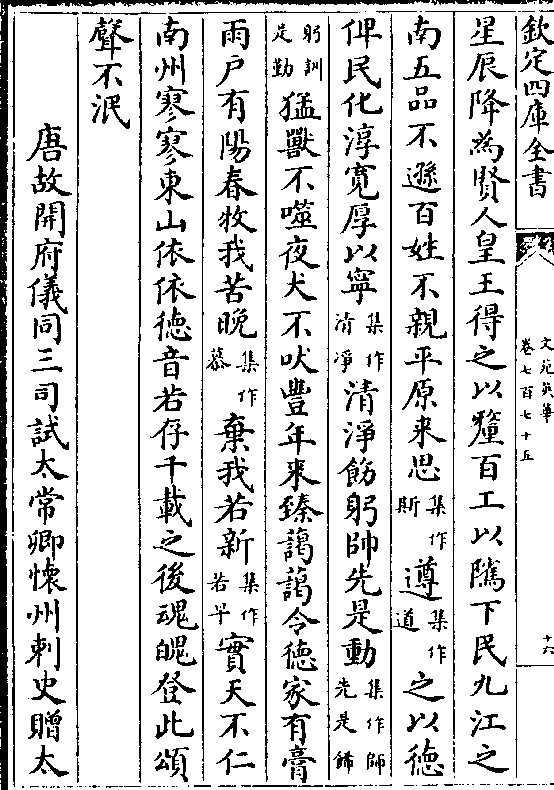 欽定四庫全書
文苑英華
卷七百七十五
十六
星辰降為賢人皇王得之以釐百工以隲下民九江之
南五品不遜百姓不親平原来思集作斯遵集作道之以德
俾民化淳寛厚以寧集作清凈清淨飭躬帥先是動集作師先是飾
躬訓是勤猛獸不噬夜犬不吠豐年来臻藹藹令德家有膏
雨戸有陽春牧我苦晚集作慕棄我若新集作若早實天不仁
南州寥寥東山依依德音若存千載之後魂魄登此頌
聲不泯
唐故開府儀同三司試太常卿懷州刺史贈太